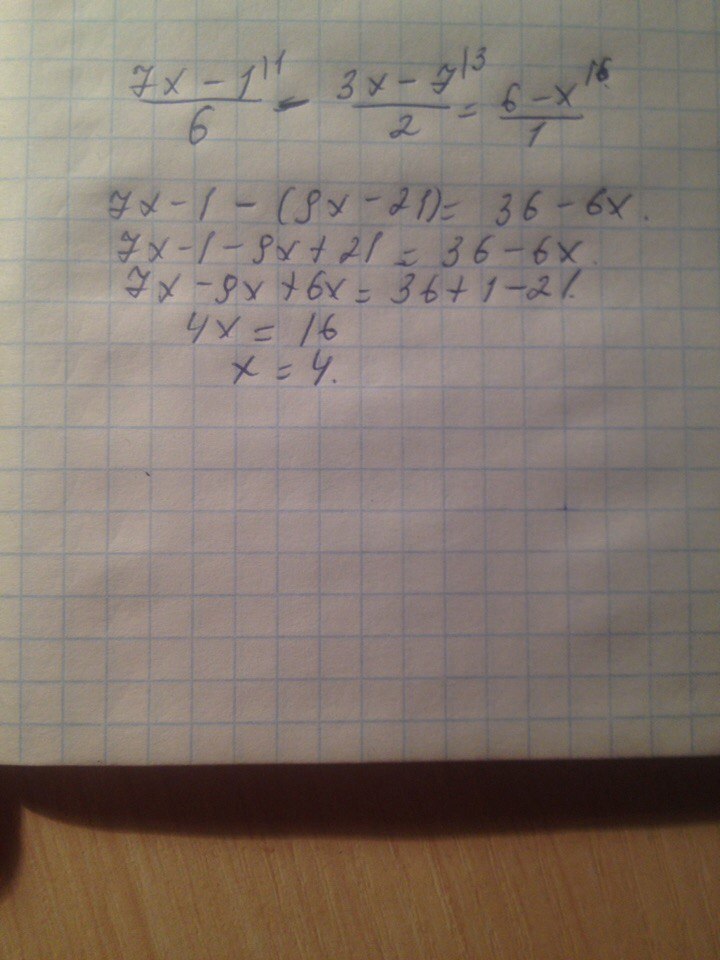 7x - 1 |1 / 6 - 3x - 7 |3 / 2 = 6 - x |6 / 1
7x - 1 - (9x - 21) = 36 - 6x.
7x - 1 - 9x + 21 = 36 - 6x.
7x - 9x + 6x = 36 + 1 - 21.
4x = 16
x = 4.